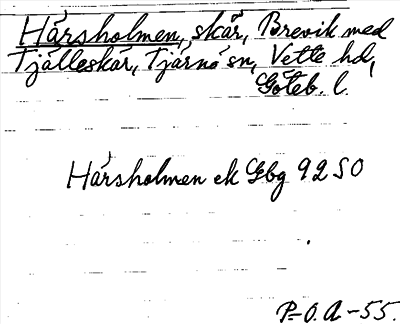 Hårsholmen, skär, Brevik med
Tjälleskär, Tjärnö sn, Vette hd,
Göteb. l.
Hårsholmen ek Gbg 92 SO
P-O.A-55.